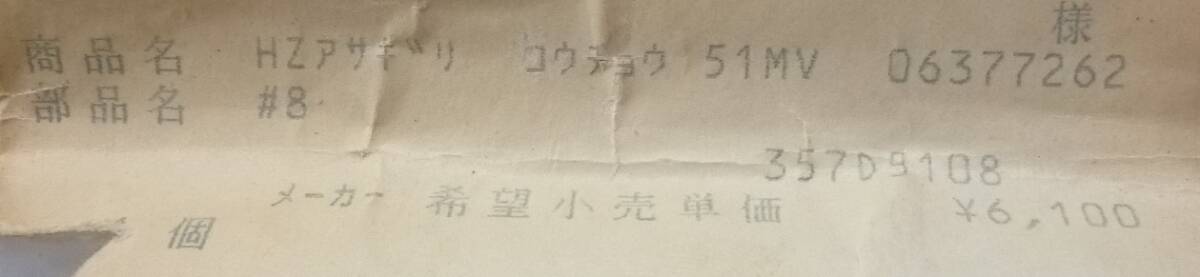 様
商品名 HZアサギリ コウチョウ 51MV 06377262
部品名 #8
357D9108
メーカー 希望小売単価 ¥6,100
個